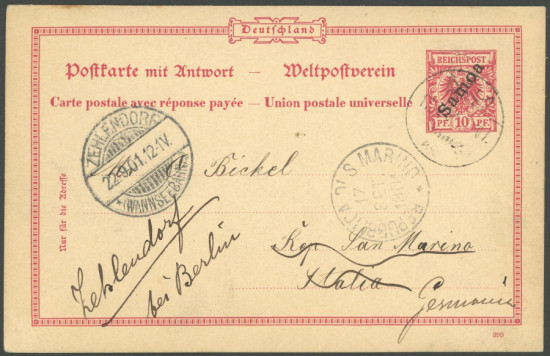 Deutschland
Postkarte mit Antwort — Weltpostverein
Carte postale avec réponse payée — Union postale universelle
REICHSPOST
Samoa
PF. 10 PF.
ZEHLENDORF
22.9.01.12-1V.
*(WANNSEEBAHN)
REPUBBLICA DI S. MARINO
17
SET
1901
Nur für die Adresse
Bickel
Rep San Marino
Italia
Germania
Zehlendorf
bei Berlin